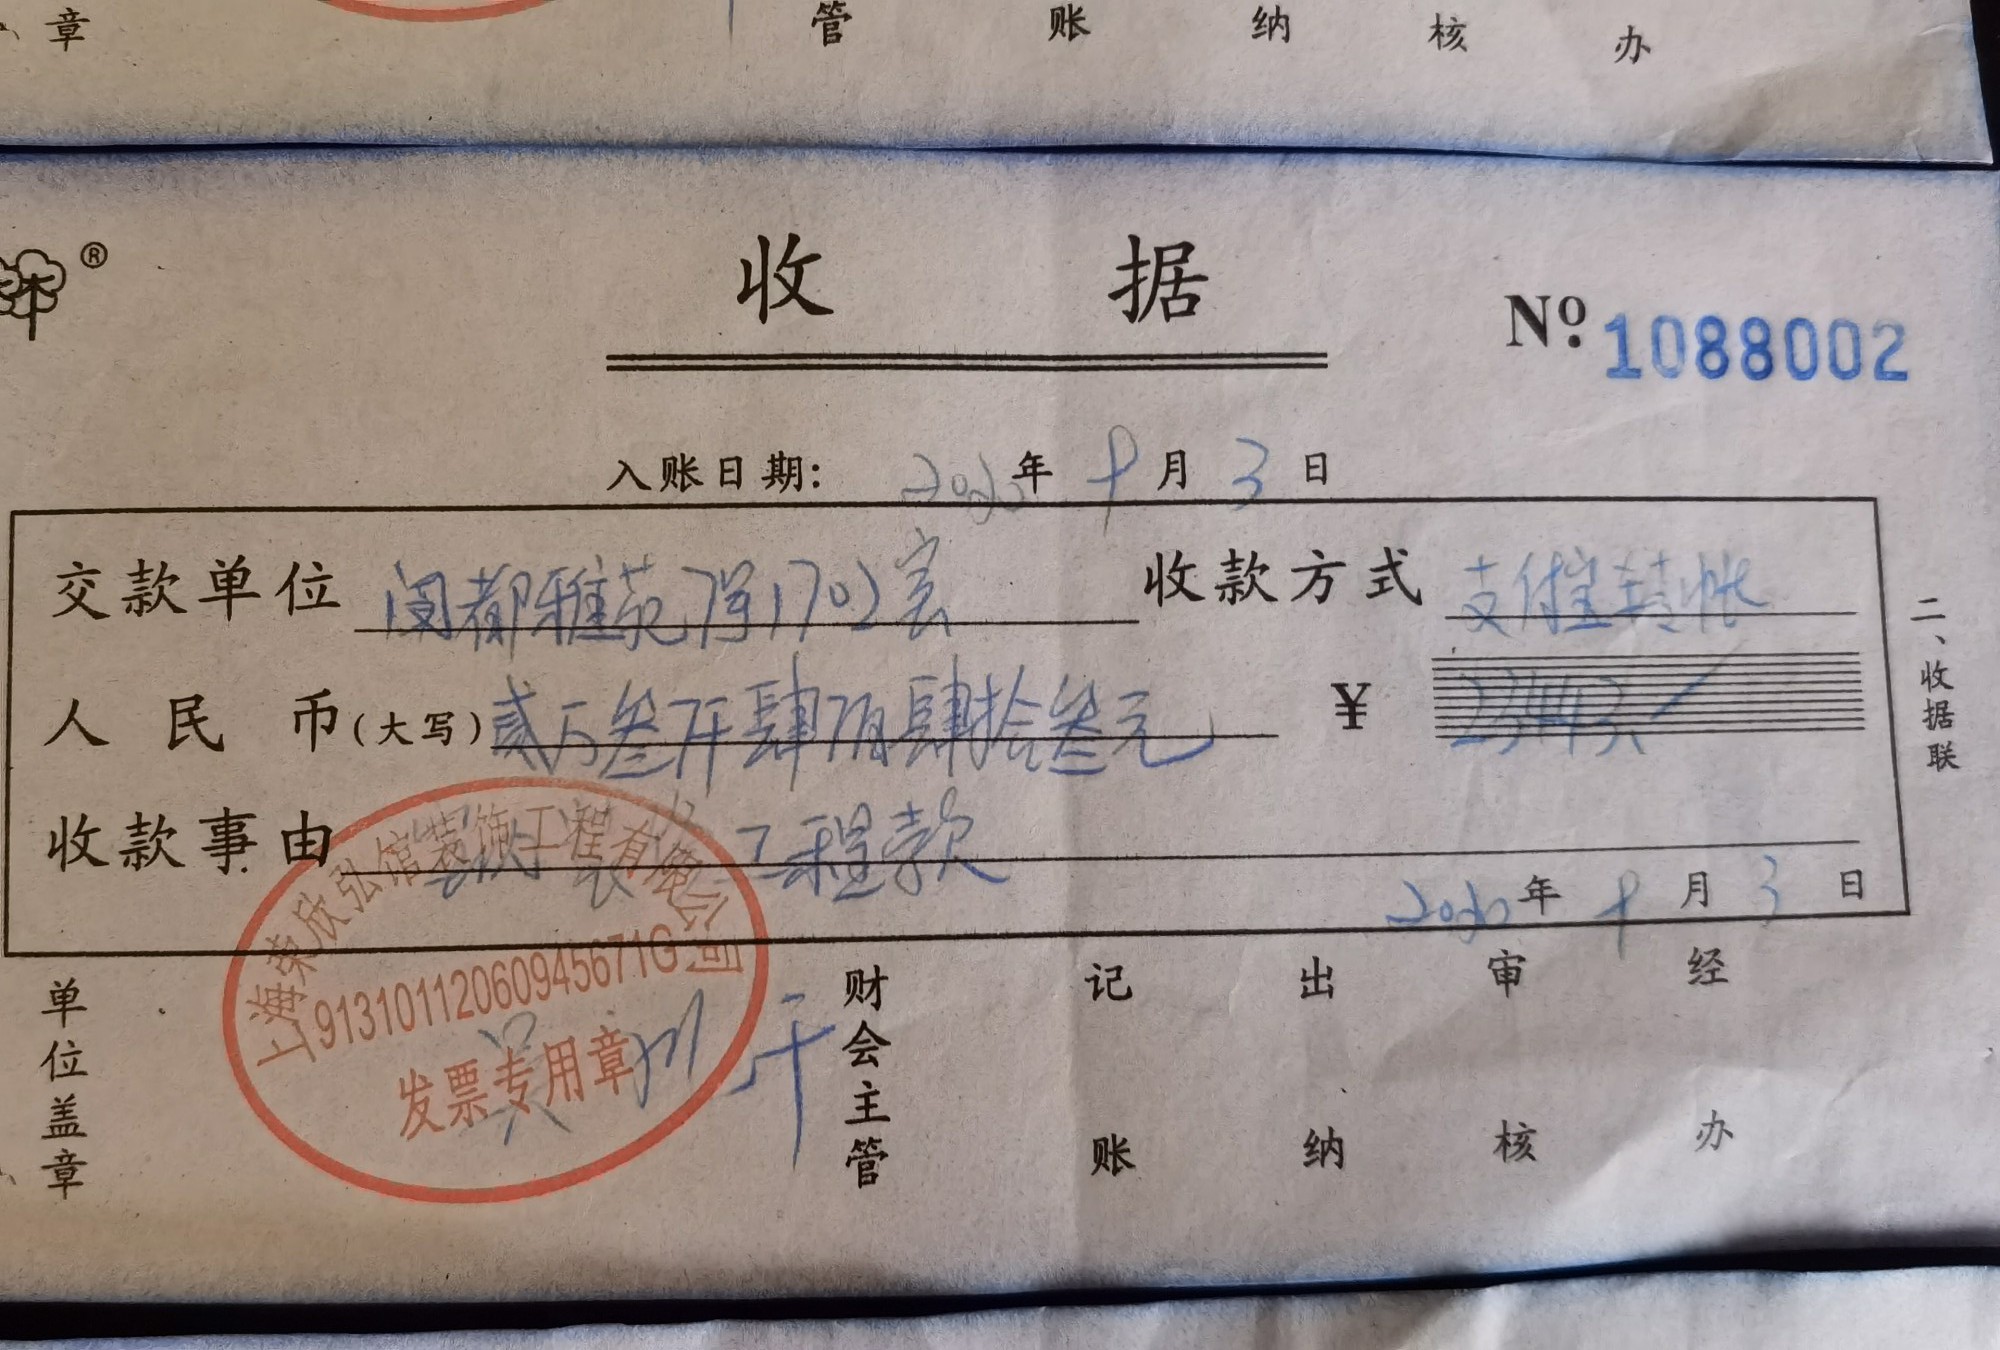 章 管 账 纳 核 办
®
收 据
Nº 1088002
入账日期: 2020年 9月 3日
交款单位 闵都雅苑7号1702室 收款方式 支付宝转帐
人民币(大写) 贰万叁仟肆佰肆拾叁元 ¥ 23443
收款事由 工程款
2020年 9月 3日
二、收据联
上海荣欣弘馆装饰工程有限公司
91310112060945671G
发票专用章
单位盖章
财会主管
记账
出纳
审核
经办